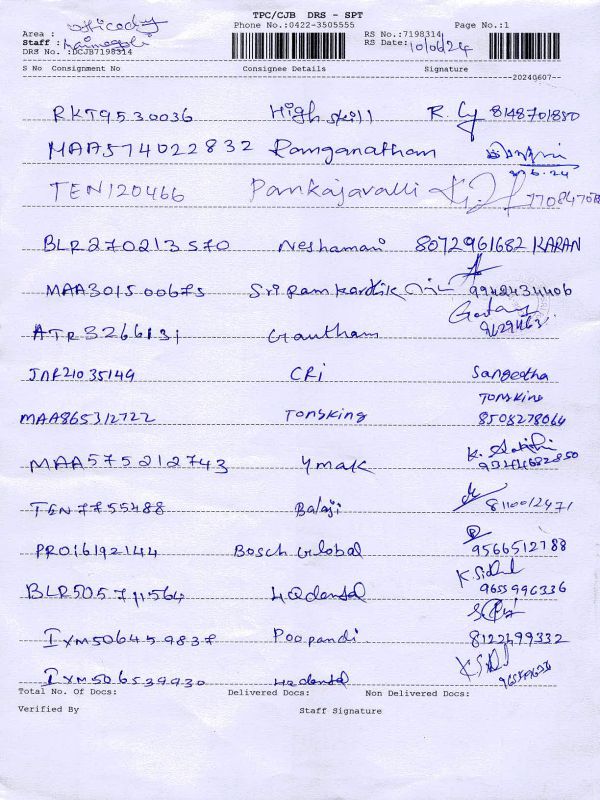 TPC/CJB DRS - SPT
Phone No.:0422-3505555 Page No.:1
Area :
Staff : RS No.:7198314
DRS No. :DCJB7198314 RS Date: 10/06/24
S No Consignment No Consignee Details Signature
--20240607--
RKT9530036 High skill R. 8148701850
MAA574022832 Ramganatham
TEN120466 Pankajavalli
BLR270213570 Neshamani 8072961682 KARAN
MAA301500675 Sri ram karthik 9942434406
ATR3266131 Gautham Gautam
JAR21035149 CRI Sangeetha
Tonsking
MAA865312722 Tonsking 8508278064
MAA575212743 Ymak
TEN7755488 Balaji 8110012471
PRO16192144 Bosch Global 9566512788
K. Sidd
BLR505711564 HQ dental 9655996336
IXM506459837 Poopandi 8122499332
IXM506539930 HQ dental
Total No. Of Docs: Delivered Docs: Non Delivered Docs:
Verified By Staff Signature